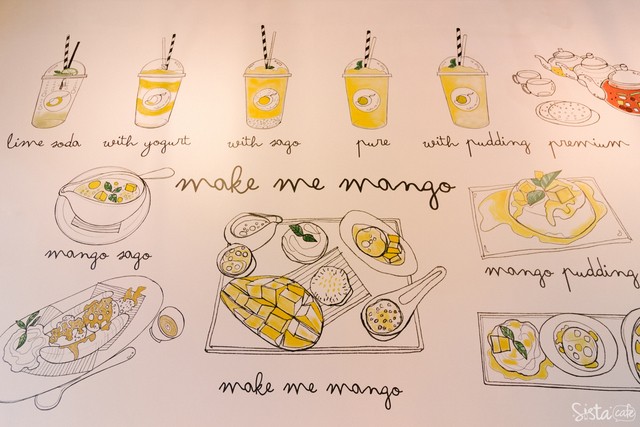 lime soda
with yogurt
with sago
pure
with pudding
premium
make me mango
mango sago
mango pudding
make me mango
Sista cafe